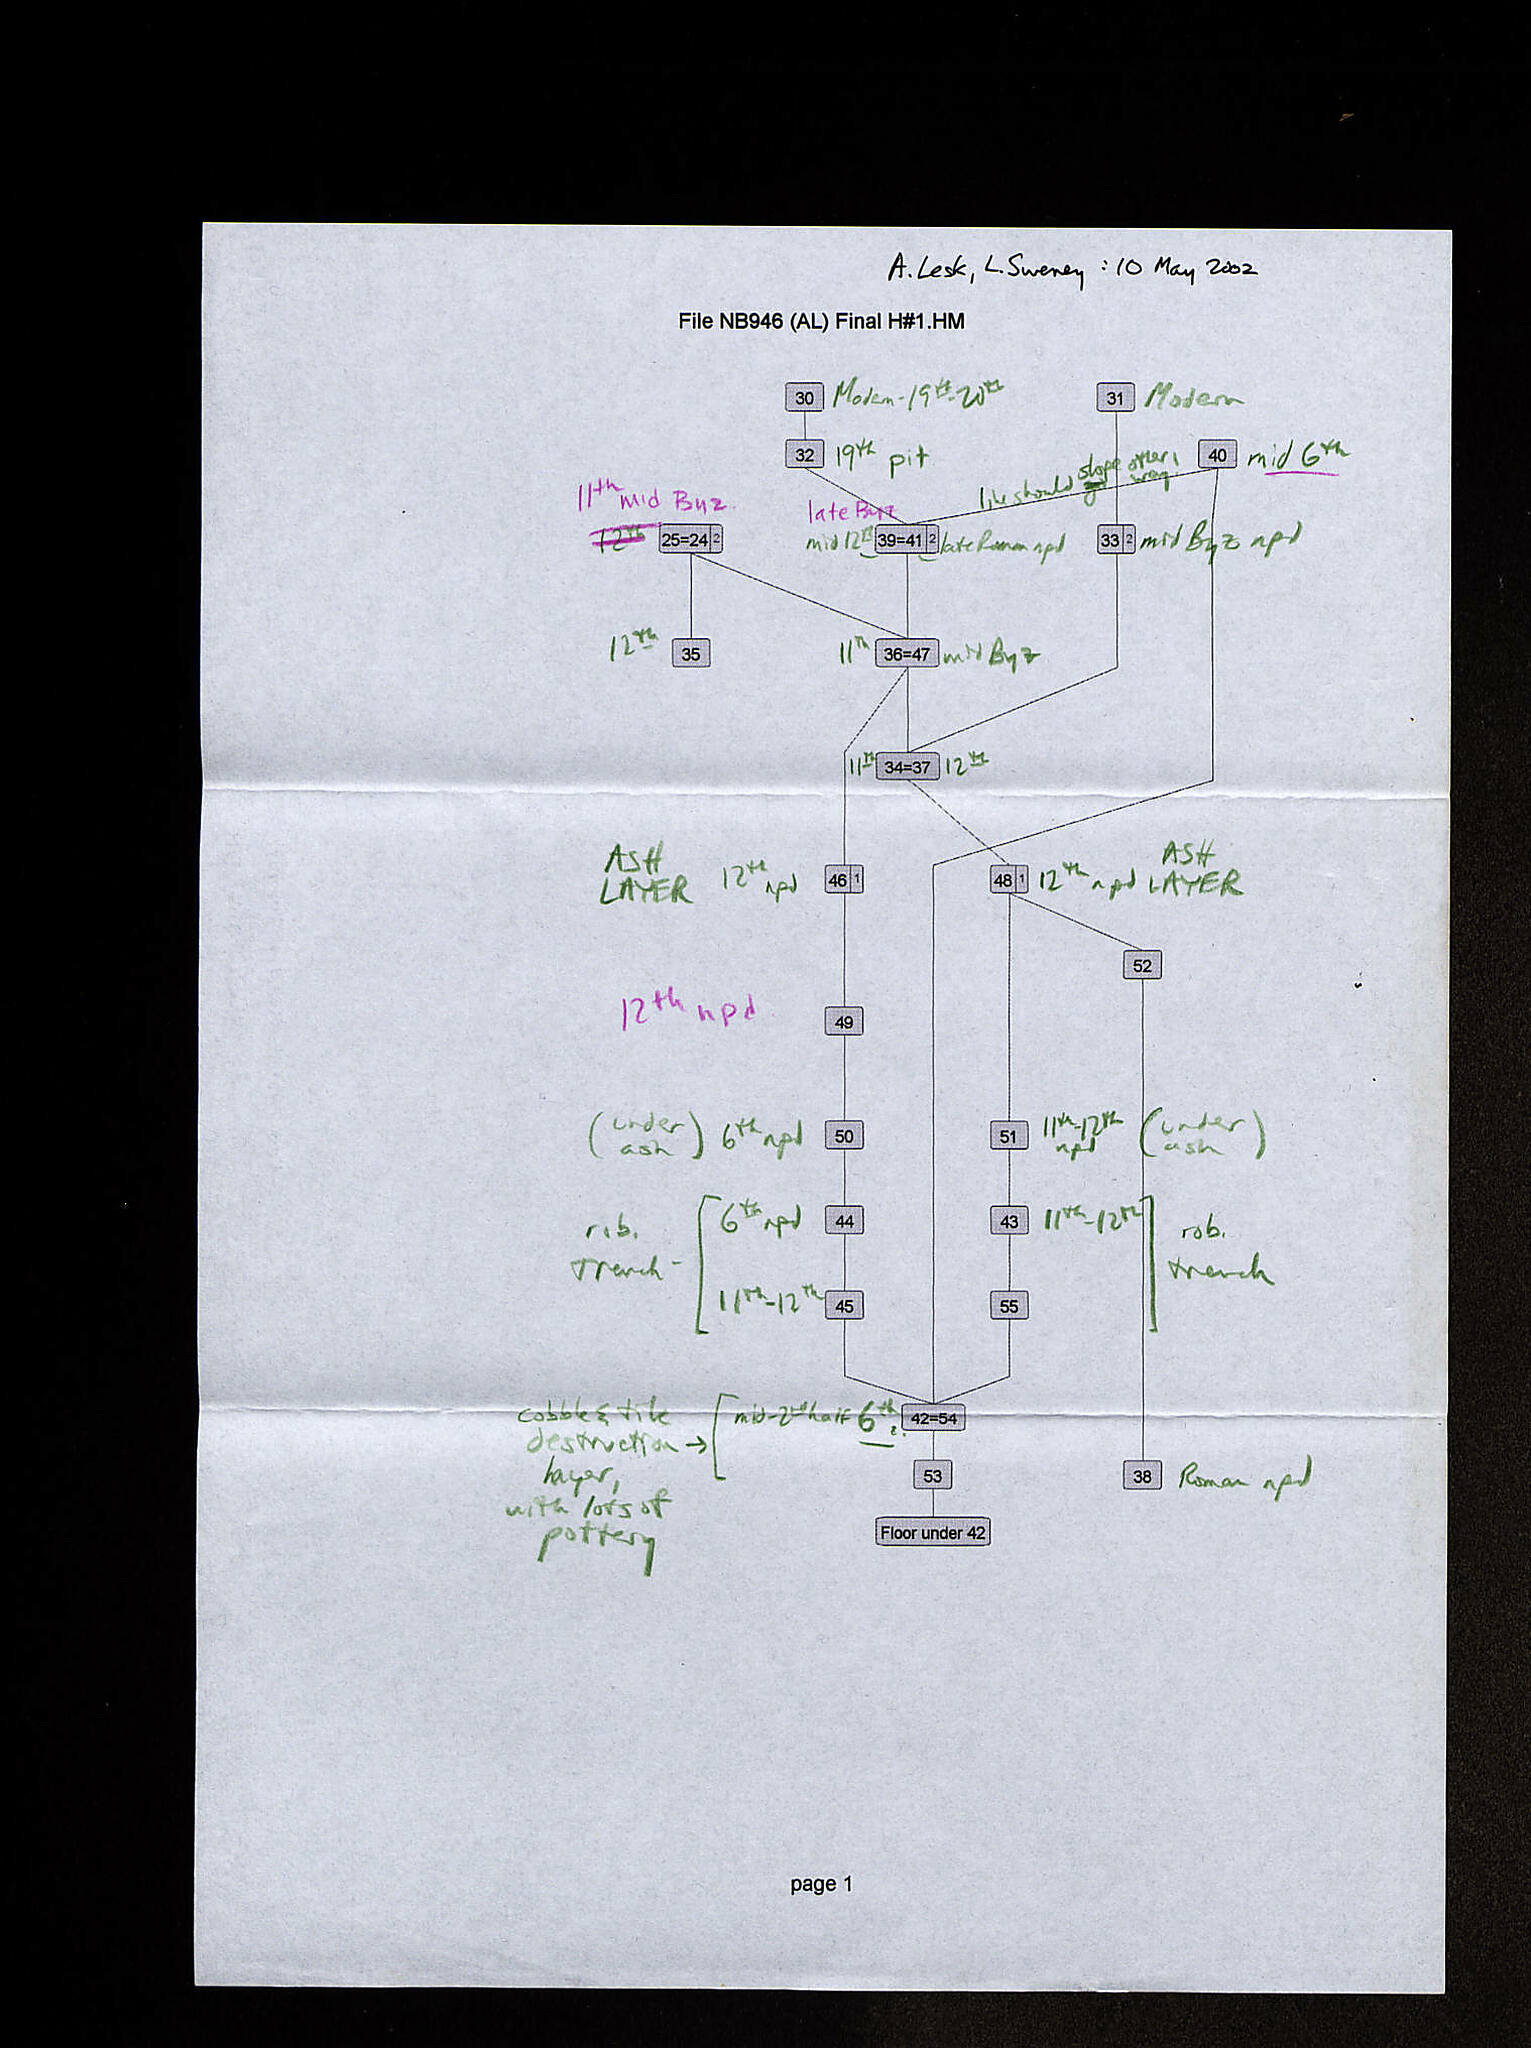 A. Lesk, L. Sweney : 10 May 2002
File NB946 (AL) Final H#1.HM
30 Modern - 19th-20th
31 Modern
32 19th pit
40 mid 6th
line should slope other way
11th mid Byz.
12th 25=24 2
late Byz
mid 12th 39=41 2 late Roman npd
33 2 mid Byz npd
12th 35
11th 36=47 mid Byz
11th 34=37 12th
ASH LAYER 12th npd 46 1
48 1 12th npd ASH LAYER
52
12th npd 49
(under ash) 6th npd 50
51 11th-12th npd (under ash)
rob. trench - 6th npd 44
43 11th-12th rob. trench
11th-12th 45
55
cobble & tile
destruction →
layer,
with lots of
pottery
mid-2nd half 6th c. 42=54
53
38 Roman npd
Floor under 42
page 1